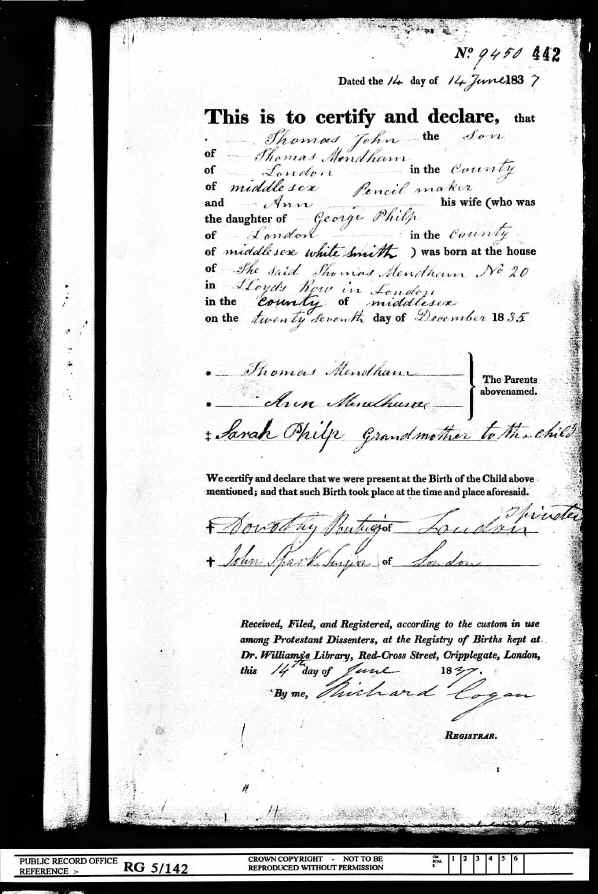 No. 9450 442
Dated the 14 day of 14 June 1837
This is to certify and declare, that
Thomas John the Son
of Thomas Mendham
of London in the County
of middlesex Pencil maker
and Ann his wife (who was
the daughter of George Philp
of London in the County
of middlesex white smith ) was born at the house
of The said Thomas Mendham No 20
in LLoyds Row in London
in the County of middlesex
on the twenty seventh day of December 1835
• Thomas Mendham
The Parents
abovenamed.
• Ann Mendham
‡ Sarah Philp Grandmother to the child
We certify and declare that we were present at the Birth of the Child above
mentioned; and that such Birth took place at the time and place aforesaid.
† Dorothy of London
† John of London
Received, Filed, and Registered, according to the custom in use
among Protestant Dissenters, at the Registry of Births kept at
Dr. Williams's Library, Red-Cross Street, Cripplegate, London,
this 14th day of June 1837.
By me, Richard Cogan
REGISTRAR.
PUBLIC RECORD OFFICE
REFERENCE :- RG 5/142
CROWN COPYRIGHT - NOT TO BE
REPRODUCED WITHOUT PERMISSION
1 2 3 4 5 6